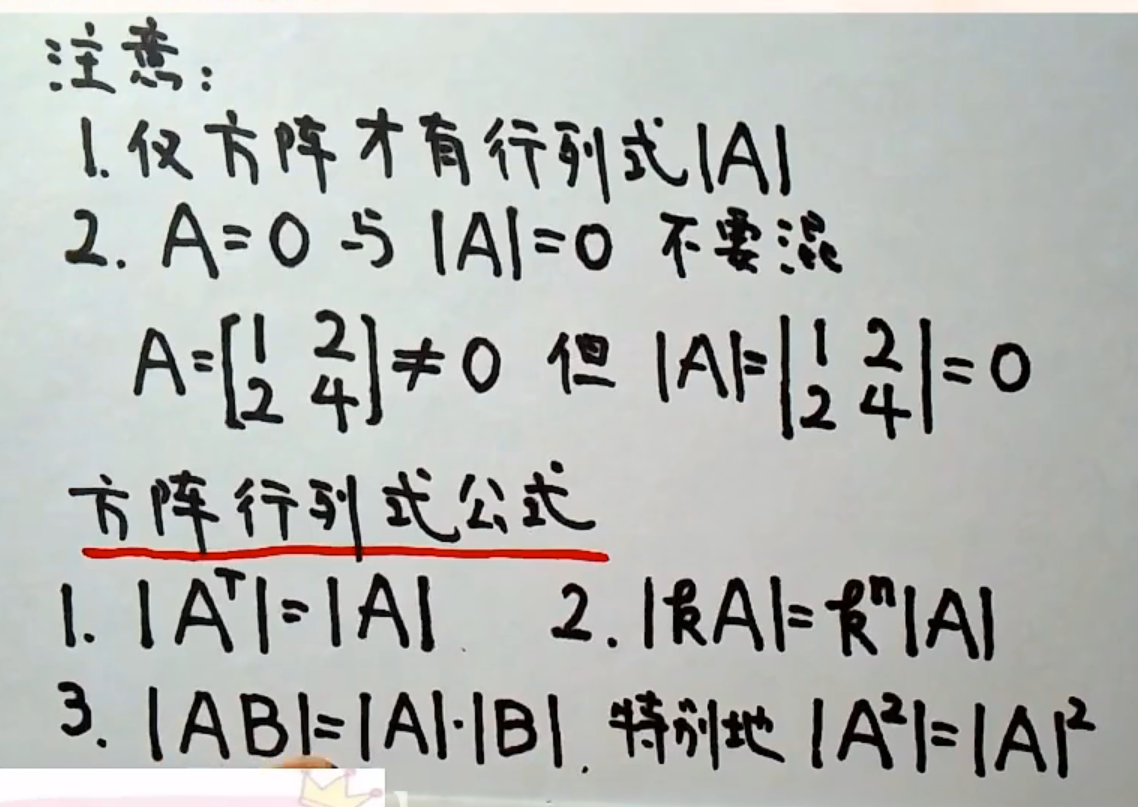 注意:
1. 仅方阵才有行列式|A|
2. A=0 与 |A|=0 不要混
A=[1 2
2 4]≠0 但 |A|=|1 2
2 4|=0
方阵行列式公式
1. |Aᵀ|=|A| 2. |kA|=kⁿ|A|
3. |AB|=|A|·|B|. 特别地 |A²|=|A|²